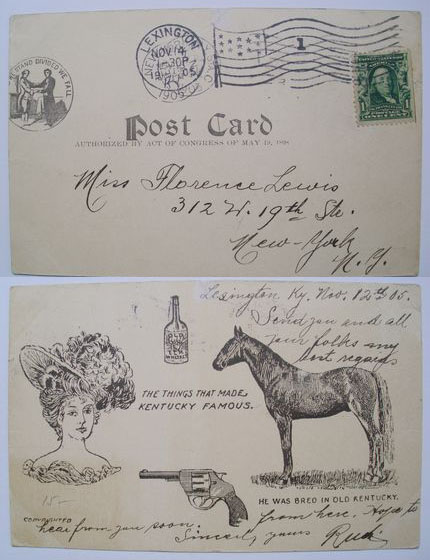 UNITED STAND DIVIDED WE FALL
LEXINGTON
NOV 14
1-30P
1905
KY.
1
Post Card
AUTHORIZED BY ACT OF CONGRESS OF MAY 19, 1898
Miss Florence Lewis
312 W. 19th Ste.
New-York
N.Y.
Lexington Ky. Nov. 12th 05.
Send you and all
your folks my
best regards
OLD
THE THINGS THAT MADE
KENTUCKY FAMOUS.
HE WAS BRED IN OLD KENTUCKY.
15-
COPYRIGHTED
from here. Hope to
hear from you soon.
Sincerely yours Rud